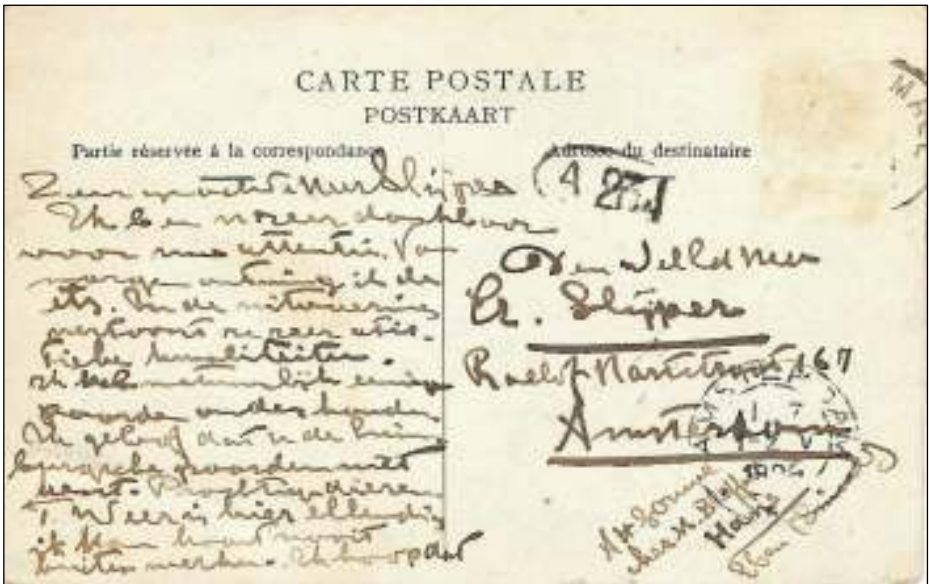 CARTE POSTALE
POSTKAART
Partie réservée à la correspondance
Adresse du destinataire
Zeer geachte Heer Slijper
Ik ben u zeer dankbaar
voor uwe attentie. Van
morgen ontving ik de
ets. In de uitvoering
vertoont ze zeer artis-
tieke kwaliteiten.
Ik heb natuurlijk eenige
paarden onderhanden
Ik geloof dat u de Lim-
burgsche paarden niet
kent. Prachtige dieren
T Weer is hier ellendig
ik kan haast nooit
buiten werken. Ik hoop dat
Den WelEd Heer
Slijper
Roelof Hartstraat 167
Amsterdam